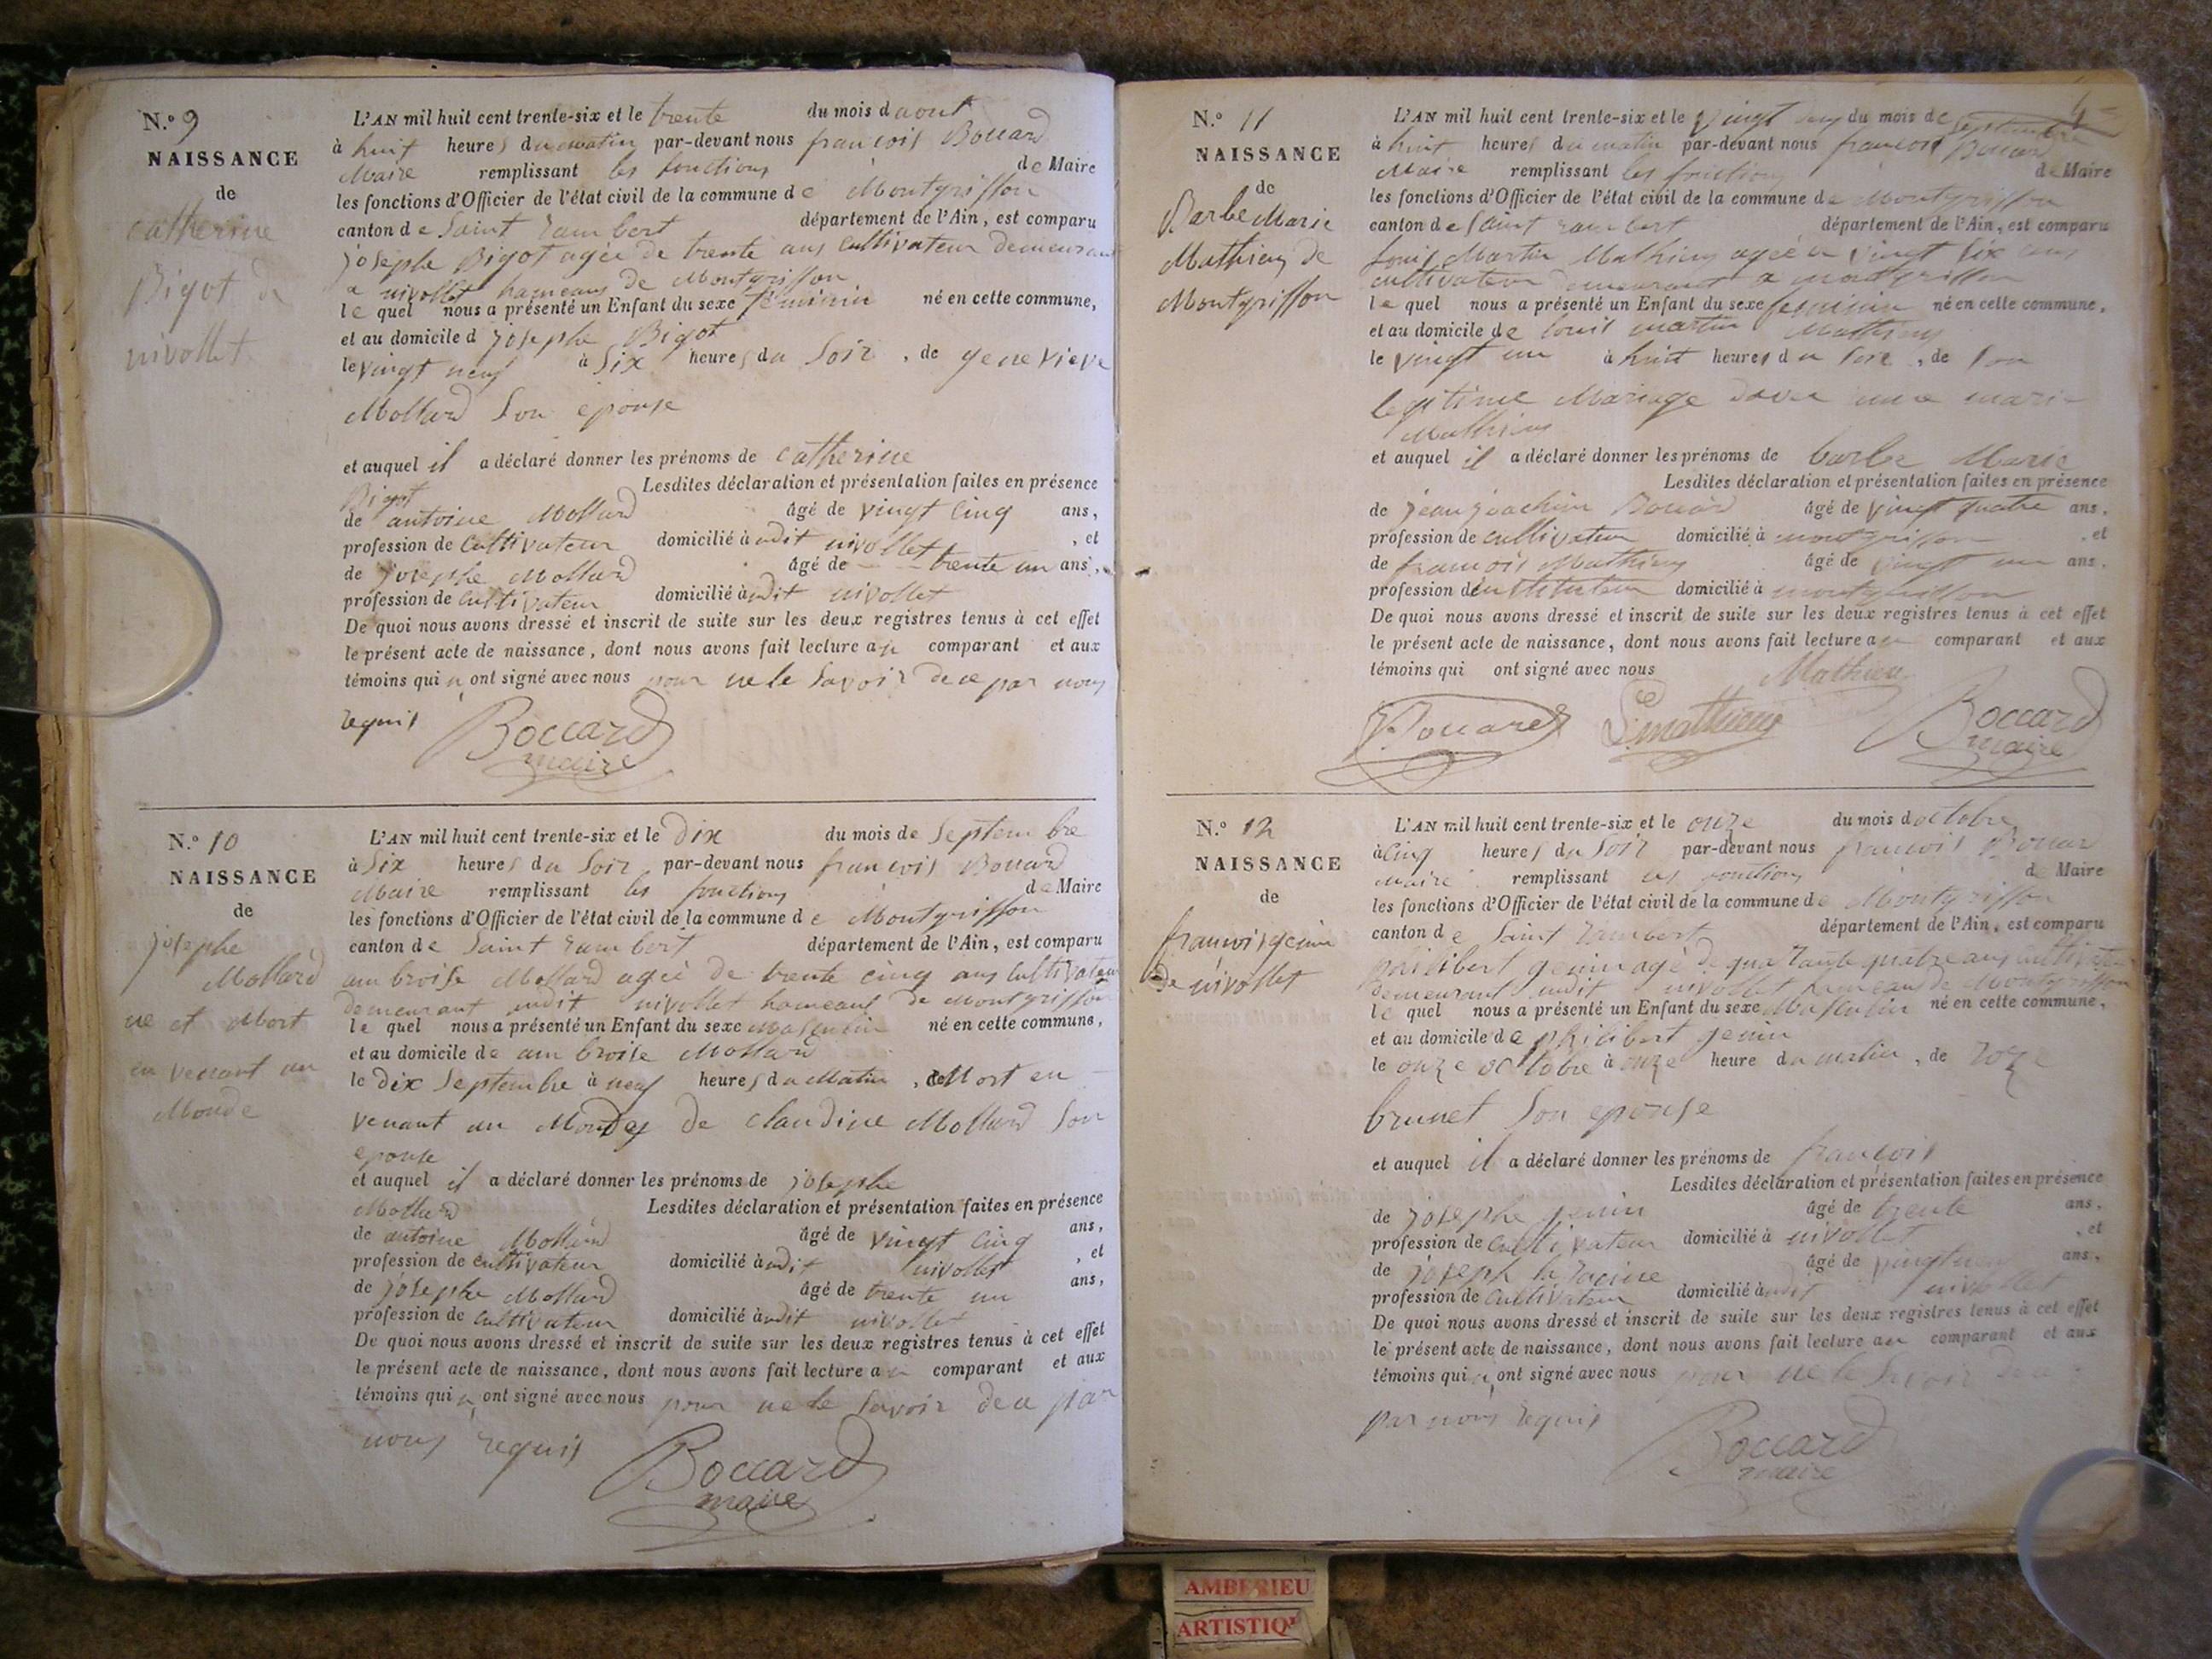 N.º 9
NAISSANCE
de
catherine
Bigot de
nivollet
L'AN mil huit cent trente-six et le trente du mois d aout
à huit heures du matin par-devant nous francois Bouard
Maire remplissant les fonctions de Maire
les fonctions d'Officier de l'état civil de la commune de Montgriffon
canton de Saint rambert département de l'Ain, est comparu
josephe Bigot agée de trente ans cultivateur demeurant
a nivollet hameaus de Montgriffon
le quel nous a présenté un Enfant du sexe féminin né en cette commune,
et au domicile d josephe Bigot
le vingt neuf à Six heures du Soir, de genevieve
Mollard Son epouse
et auquel il a déclaré donner les prénoms de catherine
Bigot Lesdites déclaration et présentation faites en présence
de antoine Mollard âgé de vingt cinq ans,
profession de Cultivateur domicilié à udit nivollet, et
de josephe Mollard âgé de trente un ans,
profession de Cultivateur domicilié à udit nivollet
De quoi nous avons dressé et inscrit de suite sur les deux registres tenus à cet effet
le présent acte de naissance, dont nous avons fait lecture au comparant et aux
témoins qui n ont signé avec nous pour ne le Savoir de ce par nous
requis
Boccard
maire
N.º 10
NAISSANCE
de
josephe
Mollard
ne et Mort
en venant au
Monde
L'AN mil huit cent trente-six et le Dix du mois de Septembre
à Six heures du Soir par-devant nous francois Bouard
Maire remplissant les fonctions de Maire
les fonctions d'Officier de l'état civil de la commune de Montgriffon
canton de Saint rambert département de l'Ain, est comparu
ambroise Mollard agée de trente cinq ans Cultivateur
demeurant udit nivollet hameaus de Montgriffon
le quel nous a présenté un Enfant du sexe Masculin né en cette commune,
et au domicile de ambroise Mollard
le Dix Septembre à neuf heures du Matin, Mort en
venant au Monde de Claudine Mollard Son
epouse
et auquel il a déclaré donner les prénoms de josephe
Mollard Lesdites déclaration et présentation faites en présence
de antoine Mollard âgé de vingt cinq ans,
profession de cultivateur domicilié à udit nivollet, et
de josephe Mollard âgé de trente un ans,
profession de Cultivateur domicilié à udit nivollet
De quoi nous avons dressé et inscrit de suite sur les deux registres tenus à cet effet
le présent acte de naissance, dont nous avons fait lecture au comparant et aux
témoins qui n ont signé avec nous pour ne le Savoir de ce par
nous requis
Boccard
maire
N.º 11
NAISSANCE
de
Barbe Marie
Mathieu de
Montgriffon
L'AN mil huit cent trente-six et le vingt du mois de Septembre
à huit heures du matin par-devant nous francois Bouard
Maire remplissant les fonctions de Maire
les fonctions d'Officier de l'état civil de la commune de Montgriffon
canton de Saint rambert département de l'Ain, est comparu
Louis Martin Mathieu agée de vingt six ans
cultivateur demeurant a montgriffon
le quel nous a présenté un Enfant du sexe feminin né en cette commune,
et au domicile de louis martin Mathieu
le vingt un à huit heures du Soir, de Son
legitime Mariage marie
Mathieu
et auquel il a déclaré donner les prénoms de barbe Marie
Lesdites déclaration et présentation faites en présence
de jean joachim Bouard âgé de vingt quatre ans,
profession de cultivateur domicilié à montgriffon, et
de francois Mathieu âgé de vingt un ans,
profession d instituteur domicilié à montgriffon
De quoi nous avons dressé et inscrit de suite sur les deux registres tenus à cet effet
le présent acte de naissance, dont nous avons fait lecture au comparant et aux
témoins qui ont signé avec nous Mathieu
Bouard mathieu Boccard
maire
N.º 12
NAISSANCE
de
francois genin
de nivollet
L'AN mil huit cent trente-six et le onze du mois d octobre
à cinq heures du Soir par-devant nous francois Bouar
maire remplissant les fonctions de Maire
les fonctions d'Officier de l'état civil de la commune de Montgriffon
canton de Saint rambert département de l'Ain, est comparu
philibert genin agé de quarante quatre ans cultivateur
demeurant udit nivollet hameau de Montgriffon
le quel nous a présenté un Enfant du sexe Masculin né en cette commune,
et au domicile de philibert genin
le onze octobre à onze heure du matin, de roze
brunet Son epouse
et auquel il a déclaré donner les prénoms de francois
Lesdites déclaration et présentation faites en présence
de josephe genin âgé de trente ans,
profession de cultivateur domicilié à nivollet, et
de joseph la racine âgé de ans,
profession de Cultivateur domicilié à udit nivollet
De quoi nous avons dressé et inscrit de suite sur les deux registres tenus à cet effet
le présent acte de naissance, dont nous avons fait lecture au comparant et aux
témoins qui n ont signé avec nous pour ne le Savoir de ce
par nous requis
Boccard
maire
AMBERIEU
ARTISTIQ